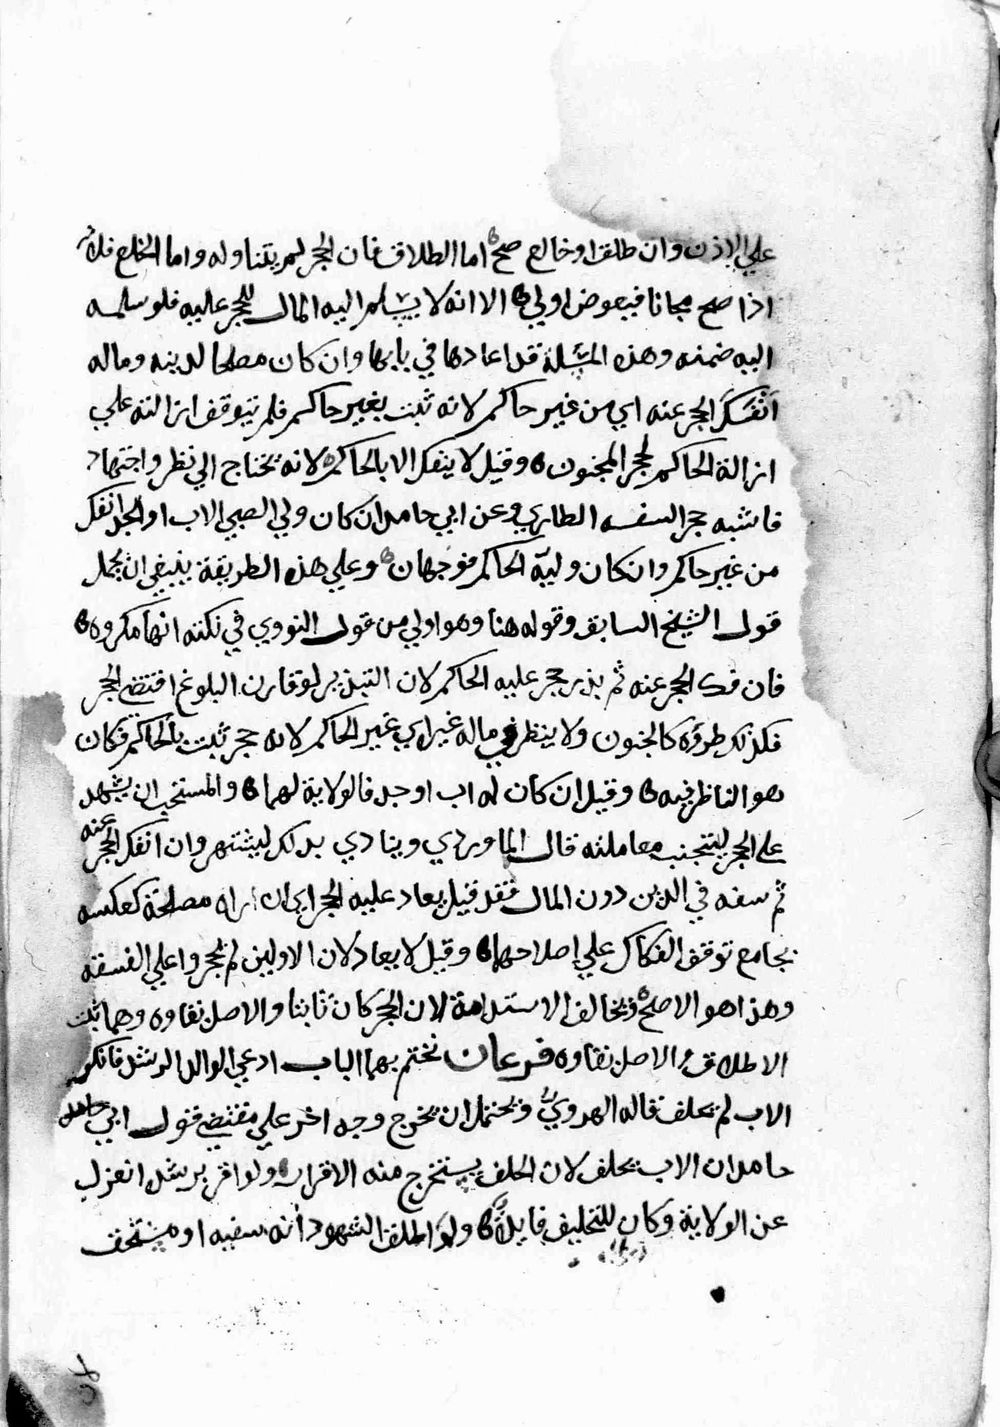 علي الاذن وان طلق او خالع صح اما الطلاق فان الحجر لم يتناوله واما الخلع فلانه
اذا صح مجانا فبعوض اولي الا انه لا يسلم اليه المال للحجر عليه فلو سلمه
اليه ضمنه وهذه المسئلة قد اعادها في بابها وان كان مصلحا لدينه وماله
انفك الحجر عنه اي من غير حاكم لانه ثبت بغير حاكم فلم تتوقف ازالته علي
ازالة الحاكم لحجر المجنون وقيل لا ينفك الا بالحاكم لانه يحتاج الي نظر واجتهاد
فاشبه حجر السفه الطاري وعن ابي حامد ان كان ولي الصبي الاب او الجد انفك
من غير حاكم وان كان وليه الحاكم فوجهان وعلي هذه الطريقة ينبغي ان يحمل
قول الشيخ السابق وقوله هنا وهو اولي من قول النووي في نكته انها مكروه
فان فك الحجر عنه ثم بذر حجر عليه الحاكم لان التبذير لو قارن البلوغ اقتضي الحجر
فكذلك طروه كالجنون ولا ينظر في ماله غيراي غير الحاكم لانه حجر ثبت بالحاكم فكان
هو الناظر فيه وقيل ان كان له اب او جد فالولاية لهما والمستحب ان يشهد
علي الحجر ليتجنب معاملته قال الماوردي وينادي بذلك ليشتهر وان انفك الحجر عنه
ثم سفه في الدين دون المال فقد قيل يعاد عليه الحجر اي ان راه مصلحة كعكسه
بجامع توقف الفكاك علي اصلاحها وقيل لا يعاد لان الاولين لم يحجروا علي الفسقة
وهذا هو الاصح ويخالف الاستدامة لان الحجر كان ثابتا والاصل بقاوه وهنا ثبت
الاطلاق والاصل بقاوه فرعان نختم بهما الباب ادعي الولد الرشد فانكر
الاب لم يحلف قاله الهروي ويحتمل ان يخرج وجه اخر علي مقتضي قول ابي حامد
حامد ان الاب يحلف لان الحلف يستخرج منه الاقرار ولو اقر برشد انعزل
عن الولاية وكان للتحليف فايدة ولو اطلق الشهود انه سفيه او مستحق
لان